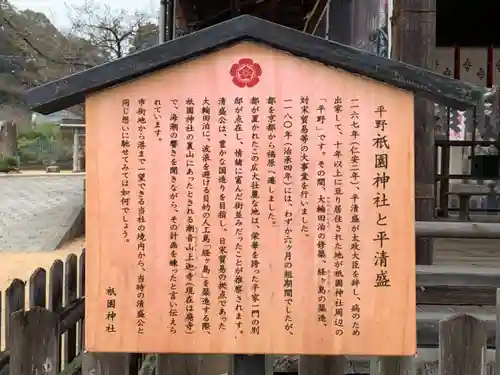 平野祇園神社と平清盛
一一六七年（仁安二年）、平清盛が太政大臣を辞し、病のため
出家して、十年以上に亘り居住された地が祇園神社周辺の
「平野」です。その間、大輪田泊の修築、経ヶ島の築造、
日宋貿易等の大事業を行いました。
一一八〇年（治承四年）には、わずか六ヶ月の短期間でしたが、
都を京都から福原へ遷しました。
都が置かれたこの広大壮麗な地は、栄華を誇った平家一門の別
邸が点在し、情緒に富んだ街並みだったことが推察されます。
清盛公は、豊かな国造りを目指し、日宋貿易の拠点であった
大輪田泊に、波浪を避ける目的の人工島「経ヶ島」を築造する際、
祇園神社の裏山にあったとされる潮音山上迦寺（現在は廃寺）
で、海潮の響きを聞きながら、その計画を練ったと言い伝えら
れています。
市街地から港まで一望できる当社の境内から、当時の清盛公と
同じ想いに馳せてみては如何でしょう。
祇園神社